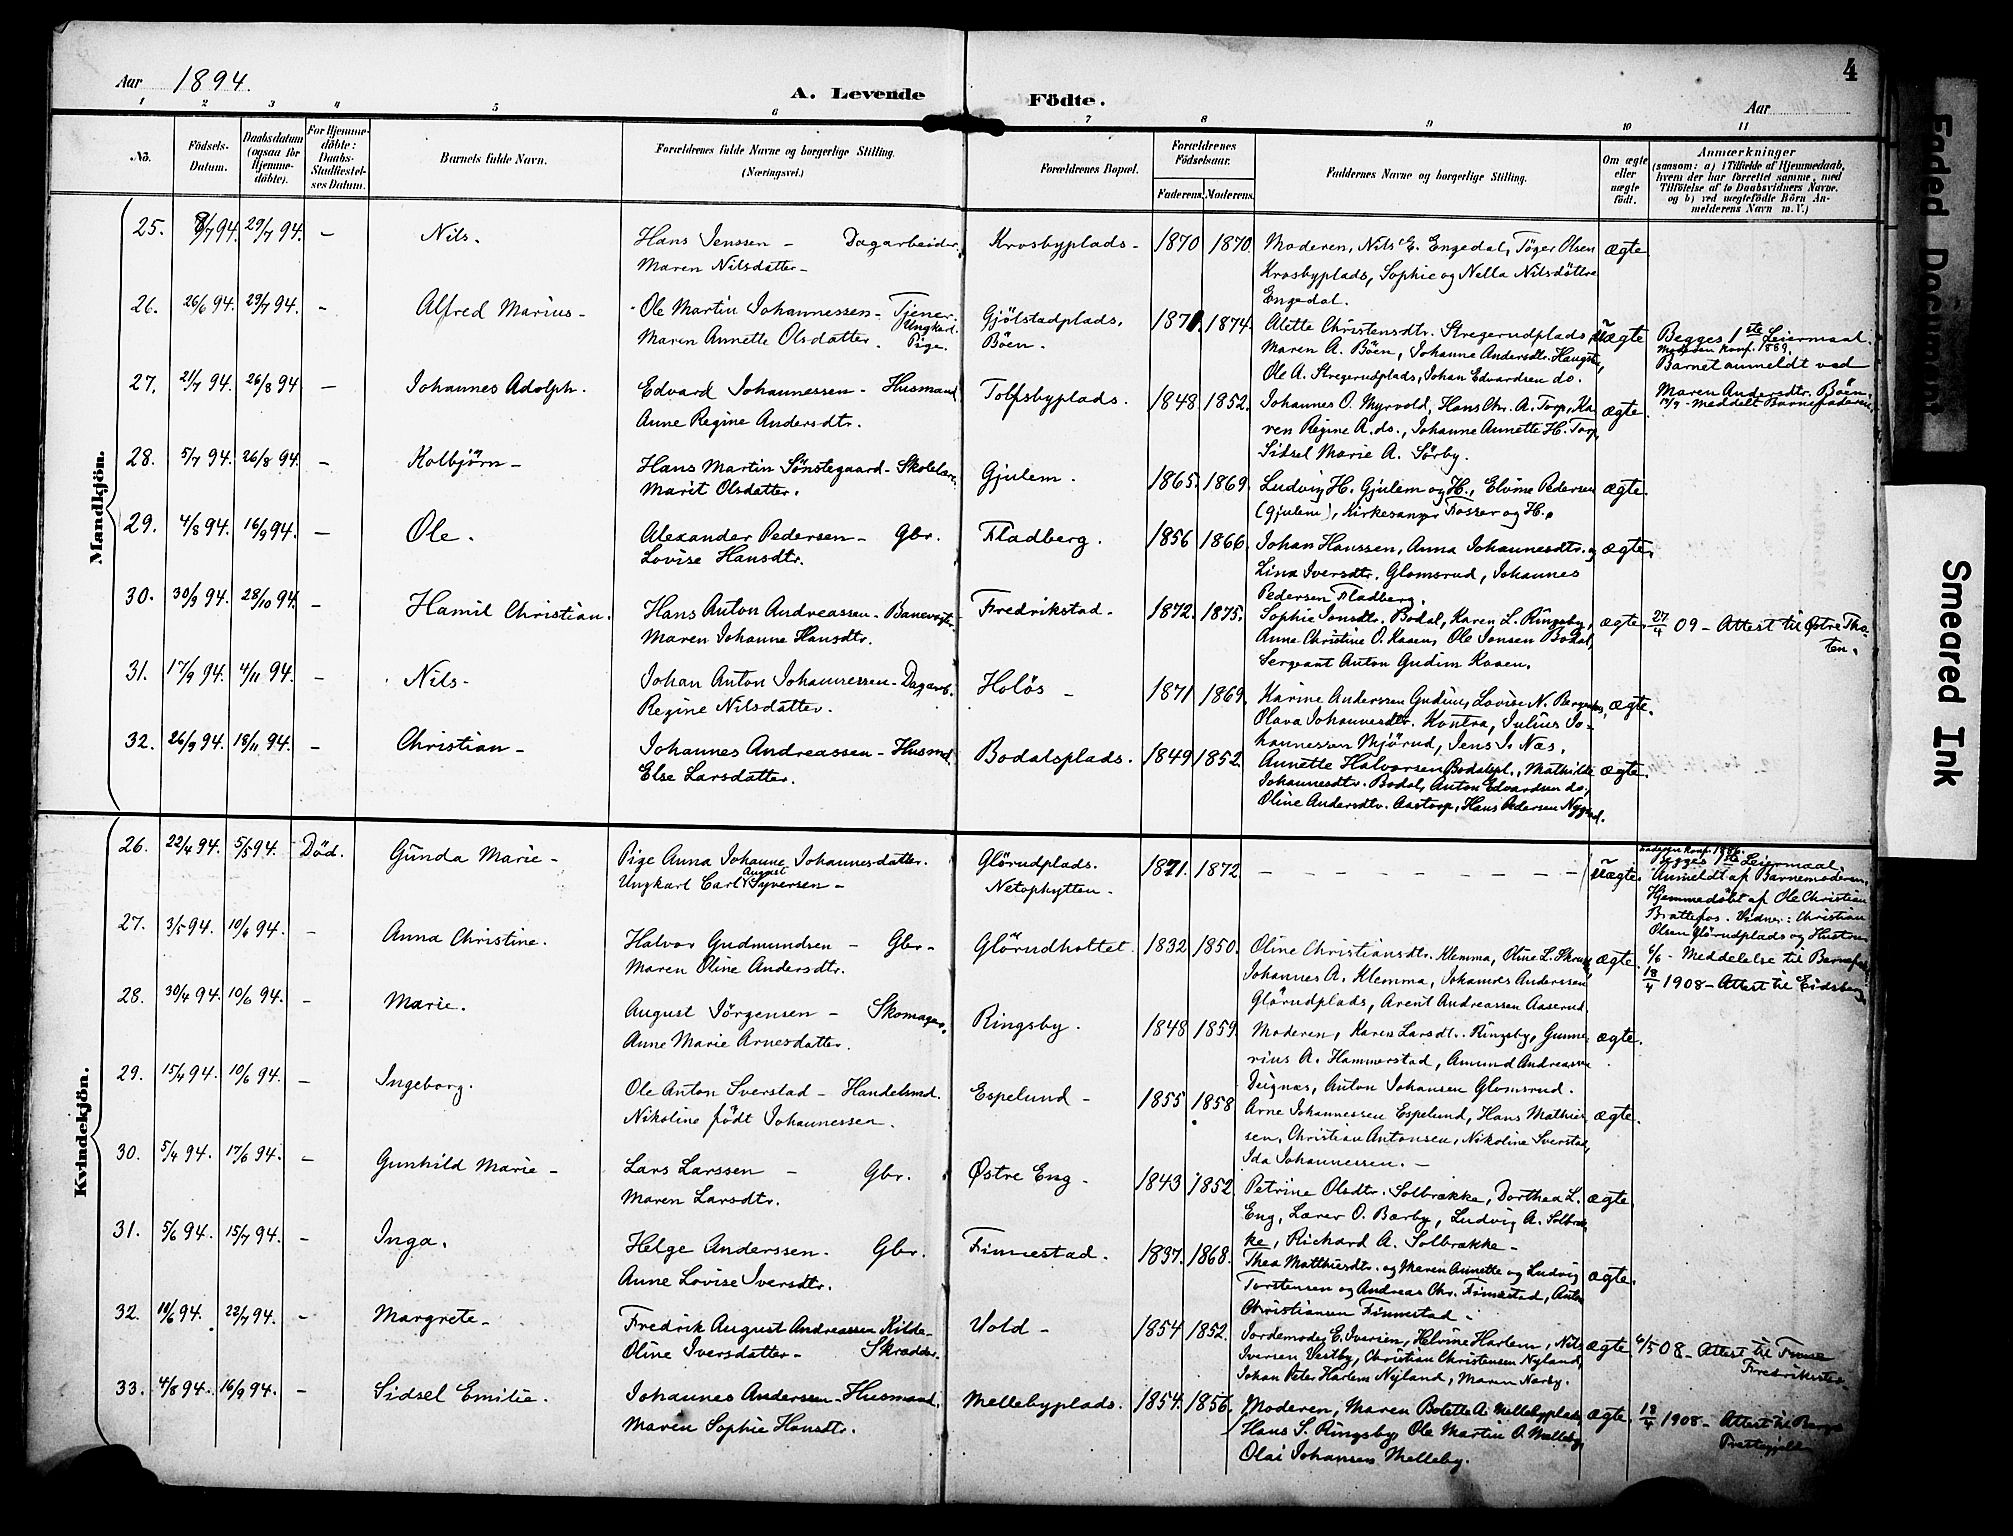 4
Aar 1894.
A. Levende Födte.
Aar
1 2 3 4 5 6 7 8 9 10 11
No.
Födsels-Datum.
Daabsdatum (ogsaa for Hjemme-döbte).
For Hjemme-döbte: Daabs-Stadfæstel-ses Datum.
Barnets fulde Navn.
Forældrenes fulde Navne og borgerlige Stilling. (Næringsvei.)
Forældrenes Bopæl.
Forældrenes Födselsaar.
Faderens. Moderens.
Faddernes Navne og borgerlige Stilling.
Om ægte eller uægte födt.
Anmærkninger
(saasom: a) i Tilfælde af Hjemmedaab, hvem der har forrettet samme, med Tilföielse af to Daabsvidners Navne, og b) ved uægtefödte Börn An-melderens Navn m. V.)
Mandkjön.
25. 8/7 94. 29/7 94. – Nils. Hans Jenssen – Dagarbeider. Krosbyplads – 1870 1870. Moderen, Nils E. Engedal, Töger Olsen ægte
Maren Nilsdatter – Krosbyplads, Sophie og Nella Nilsdöttre
Engedal.
26. 26/6 94. 29/7 94. – Alfred Marius – Ole Martin Johannessen – Tjener. Ungkarl. Gjölstadplads. 1871. 1874. Alette Christensdtr. Stregerudplads, uægte Begges 1ste Leiermaal.
Maren Annette Olsdatter. Pige. Böen. Maren A. Böen, Johanne Andersdtr. Haugst., Moderen Konf. 1889.
Ole A. Stregerudplads, Johan Edvardsen do. Barnet anmeldt ved
Maren Andersdtr. Böen.
– Meddelt Barnefaderen.
27. 21/7 94. 26/8 94 – Johannes Adolph. Edvard Johannessen – Husmand Tolfsbyplads. 1848 1852. Johannes O. Myrvold, Hans Chr. A. Torp, Ka- ægte.
Anne Regine Andersdtr. ren Regine A. do., Johanne Annette H. Torp,
Sidsel Marie A. Sörby.
28. 5/7 94. 26/8 94. – Kolbjörn – Hans Martin Sönstegaard – Skolelær. Gjulem. 1865. 1869. Ludvig H. Gjulem og H., Elvine Pedersen ægte.
Marit Olsdatter. (Gjulem), Kirkesanger Fosser og H.
29. 4/8 94. 16/9 94. – Ole. Alexander Pedersen – Gbr. Fladberg. 1856 1866. Johan Hanssen, Anna Johannesdtr. og ægte.
Lovise Hansdtr. Lina Iversdtr. Glomsrud, Johannes
Pedersen Fladberg.
30. 30/9 94. 28/10 94. – Hamil Christian. Hans Anton Andreassen – Banevogter. Fredrikstad. 1872. 1875. Sophie Jonsdtr. Bodal, Karen L. Ringsby, ægte. 27/4 09 – Attest til Østre Tho-
Maren Johanne Hansdtr. Anne Christine O. Kaaen, Ole Jonsen Bodal, ten.
Sergeant Anton Gudim Kaaen.
31. 17/9 94. 4/11 94. – Nils – Johan Anton Johannessen – Dagarb. Holös – 1871 1869. Karine Anderssen Gudim, Lovise N. ægte.
Regine Nilsdatter. Olava Johannesdtr. Kontra, Julius Jo-
hannessen Mjörud, Jens J. Næs.
32. 26/9 94. 18/11 94. – Christian – Johannes Andreassen – Husmd. Bodalsplads. 1849 1852. Annette Halvorsen Bodalspl., Mathilde ægte.
Else Larsdatter. Johannesdtr. Bodal, Anton Edvardsen do,
Oline Andersdtr. Aastorp, Hans Pedersen Nygrd.
Kvindekjön.
26. 22/4 94. 5/5 94. Död. Gunda Marie – Pige Anna Johanne Johannesdatter. Glörudplads. 1871. 1872 – – – uægte. Faderen Konf. 1886.
Ungkarl Carl August Syversen – Netophytten – Begges 1ste Leiermaal.
Anmeldt af Barnemoderen.
Hjemmedöbt af Ole Christian
Brattefos. Vidner: Christian
Olsen Glörudplads og Hustru
6/6 – Meddelelse til Barnefad.
27. 3/5 94. 10/6 94. – Anna Christine. Halvor Gudmundsen – Gbr – Glörudholtet. 1832 1850. Oline Christiansdtr. Klemma, Oline L. ægte. 18/4 1908 – Attest til Eidsberg.
Maren Oline Andersdtr. Johannes A. Klemma, Johannes Anderssen
Glörudplads, Arent Andreassen Aaserud.
28. 30/4 94. 10/6 94. – Marie. August Jörgensen – Skomager. Ringsby. 1848 1859. Moderen, Karen Larsdtr. Ringsby, Gunne- ægte.
Anne Marie Arnesdatter. rius A. Hammerstad, Amund Andreassen
Deignæs, Anton Johansen Glomsrud.
29. 15/4 94. 10/6 94. – Ingeborg. Ole Anton Sverstad – Handelsmd. Espelund – 1855 1858 Arne Johannessen Espelund, Hans Mathies- ægte.
Nikoline födt Johannessen. sen, Christian Antonsen, Nikoline Sverstad,
Ida Johannessen. –
30. 5/4 94. 17/6 94. – Gunhild Marie – Lars Larssen – Gbr. Østre Eng – 1843 1852 Petrine Olsdtr. Solbrække, Dorthea L. ægte.
Maren Larsdtr. Eng, Lærer O. Bærby, Ludvig A. Solbræk-
ke, Richard A. Solbrække –
31. 5/6 94. 15/7 94. – Inga. Helge Anderssen – Gbr. Finnestad. 1837. 1868. Thea Matthiesdtr. og Maren Annette og Ludvig ægte.
Anne Lovise Iversdtr. Torstensen og Andreas Chr. Finnestad, Anton
Christiansen Finnestad –
32. 10/6 94. 22/7 94. – Margrete – Fredrik August Andreassen Kilde – Vold – 1854 1852. Jordemoder E. Iversen, Helvine Harlem, Nils ægte. 6/5 08 – Attest til
Oline Iversdatter – Skrædder. Iversen Vestby, Christian Christensen Nyland, Fredrikstad.
Johan Peter Harlem Nyland, Maren Narby.
33. 4/8 94. 16/9 94. – Sidsel Emilie. Johannes Andersen – Husmand. Mellebyplads. 1854. 1856. Moderen, Maren Bolette A. Mellebyplads, ægte. 18/4 1908 – Attest til
Maren Sophie Hansdtr. Hans S. Ringsby, Ole Martin O. Melleby, Præstegjeld
Olai Johansen Melleby.
Faded Document
Smeared Ink